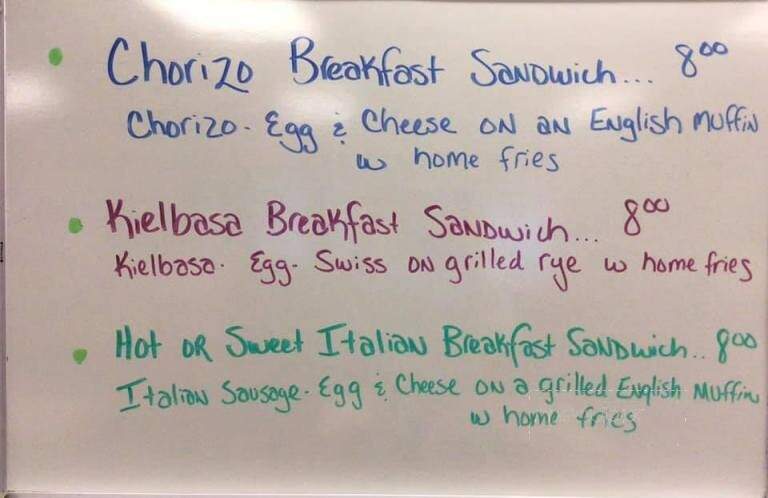 • Chorizo Breakfast Sandwich... 8⁰⁰
Chorizo - Egg & Cheese on an English Muffin
w home fries
• Kielbasa Breakfast Sandwich... 8⁰⁰
Kielbasa - Egg - Swiss on grilled rye w home fries
• Hot or Sweet Italian Breakfast Sandwich.. 8⁰⁰
Italian Sausage - Egg & Cheese on a grilled English Muffin
w home fries